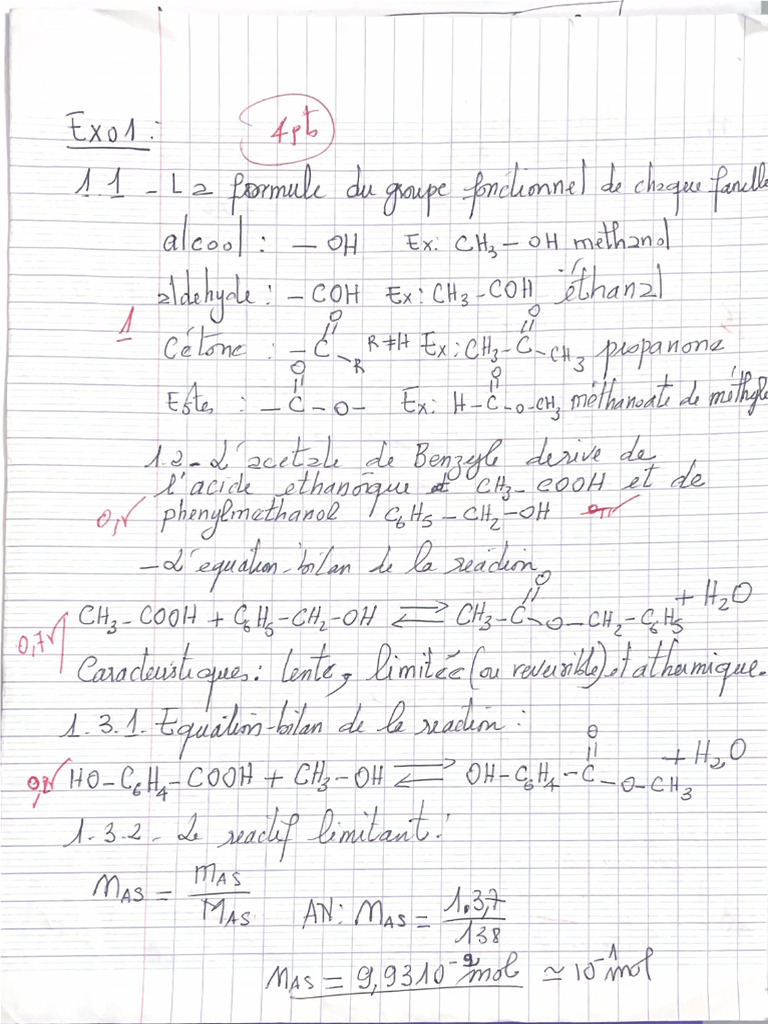 Exo1: 4pts
1.1 - La formule du groupe fonctionnel de chaque famille
alcool : - OH Ex: CH3 - OH méthanol
aldehyde : - COH Ex: CH3 - COH éthanal
1
O O
Cétone : - C - R R≠H Ex: CH3 - C - CH3 propanone
O O
Ester : - C - O - Ex: H - C - O - CH3 méthanoate de méthyle
1.2 - L'acétate de Benzyle derive de
l'acide ethanoïque CH3 - COOH et de
phenylmethanol C6H5 - CH2 - OH
- L'equation-bilan de la reaction
O
CH3 - COOH + C6H5 - CH2 - OH ⇌ CH3 - C - O - CH2 - C6H5 + H2O
Caracteristiques : lente, limitée (ou reversible) et athermique.
1.3.1. Equation-bilan de la reaction :
O
HO - C6H4 - COOH + CH3 - OH ⇌ OH - C6H4 - C - O - CH3 + H2O
1.3.2 - Le reactif limitant :
nAS = mAS / MAS AN: nAS = 13,7 / 138
nAS = 9,93 10^-2 mol ≃ 10^-1 mol